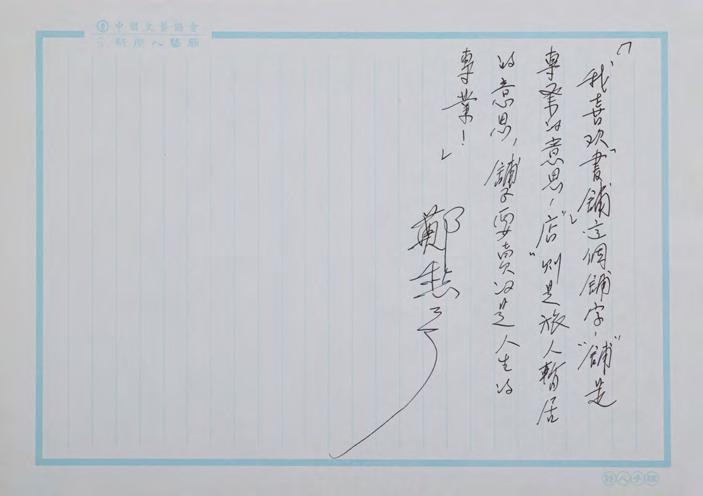 中國文藝協會
新聞人藝廊
「我喜欢“書鋪”这個鋪字，“鋪”是
專業的意思，“店”則是旅人暫居
的意思，鋪子要賣的是人生的
專業！」
鄭愁予
詩人手跡